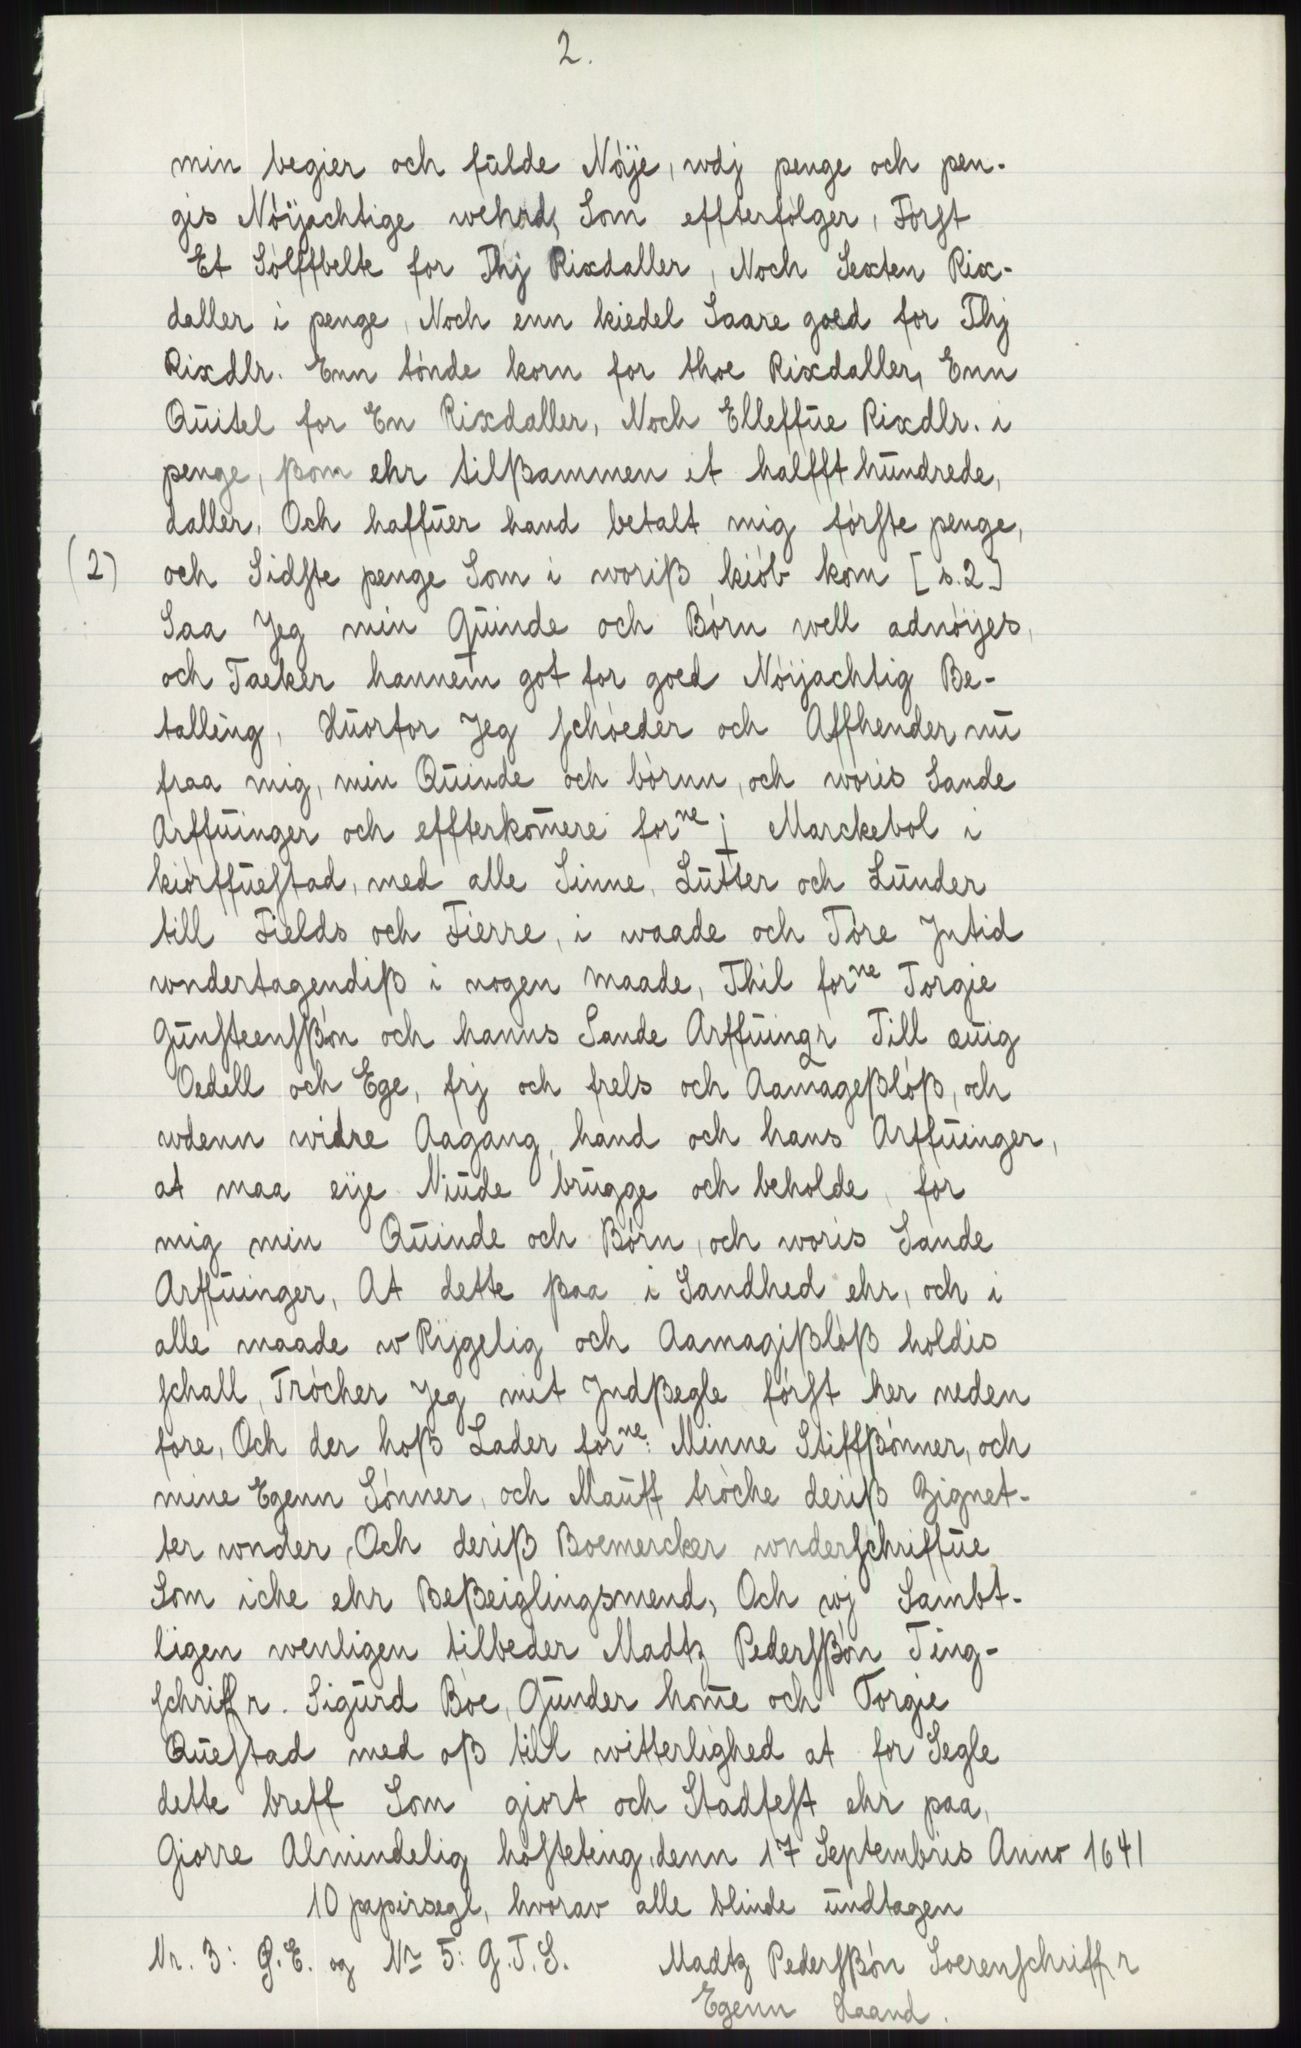 2.
min begier och fulde Nöije, wdj penge och pen-
gis Nöijachtige wehrd, Som effterfölger, Först
Et Sölffbelte for Thj Rixdaller, Noch Sexten Rix-
daller i penge, Noch enn kiedel Saare goed for Thj
Rixdlr. Enn tönde korn for thoe Rixdaller, Enn
Quitel for En Rixdaller, Noch Elleffue Rixdlr. i
penge, ßom ehr tilßammen et halfft hundrede,
daller, Och haffuer hand betalt mig förste penge,
(2) och Sidste penge Som i woriß kiöb kom [s.2]
Saa Jeg min Quinde och Börn well adnöijes,
och Tacker hannem got for goed Nöijachtig Be-
talling, Huorfor Jeg schöeder och Affhender nu
fraa mig, min Quinde och börnn, och woris Sande
Arffuinger och effterkomere forne j Marckebol i
kiörffuestad, med alle Sinne, Lutter och Lunder
till Fields och Fierre, i waade och Töre Jntid
wndertagendiß i nogen maade, Thil forne Torgie
Gunsteensßön och hanns Sande Arffuingr Till æuig
Oedell och Ege, frj och frels och Aamageßlöß, och
wdenn widre Aagang, hand och hans Arffuinger,
at maa eije Niude brugge och beholde, for
mig min Quinde och Börn, och woris Sande
Arffuinger, At dette ßaa i Sandhed ehr, och i
alle maade w Rijgelig och Aamagißlöß holdis
schall, Tröcher Jeg mit Jndßegle först her neden
fore, Och der hoß Lader forne: Minne Stiffßönner, och
mine Egenn Sönner, och Mauff tröche deriß Zignet-
ter wnder, Och deriß Boemercker wnderschriffue
Som iche ehr Beßeiglingsmend, Och wj Sambt-
ligen wenligen tilbeder Madtz Pedersßön Ting-
schriffr. Sigurd Böe, Gunder home och Torgie
Questad med oß till witterlighed at for Segle
dette breff Som giort och Stadfest ehr paa,
Giorre Almindelig hösteting, denn 17 Septembris Anno 1641
10 papirsegl, hvorav alle blinde undtagen
Nr. 3: G.E. og Nr 5: G.T.S. Madtz Pedersßön Soerenschriffr
Egenn Haand.